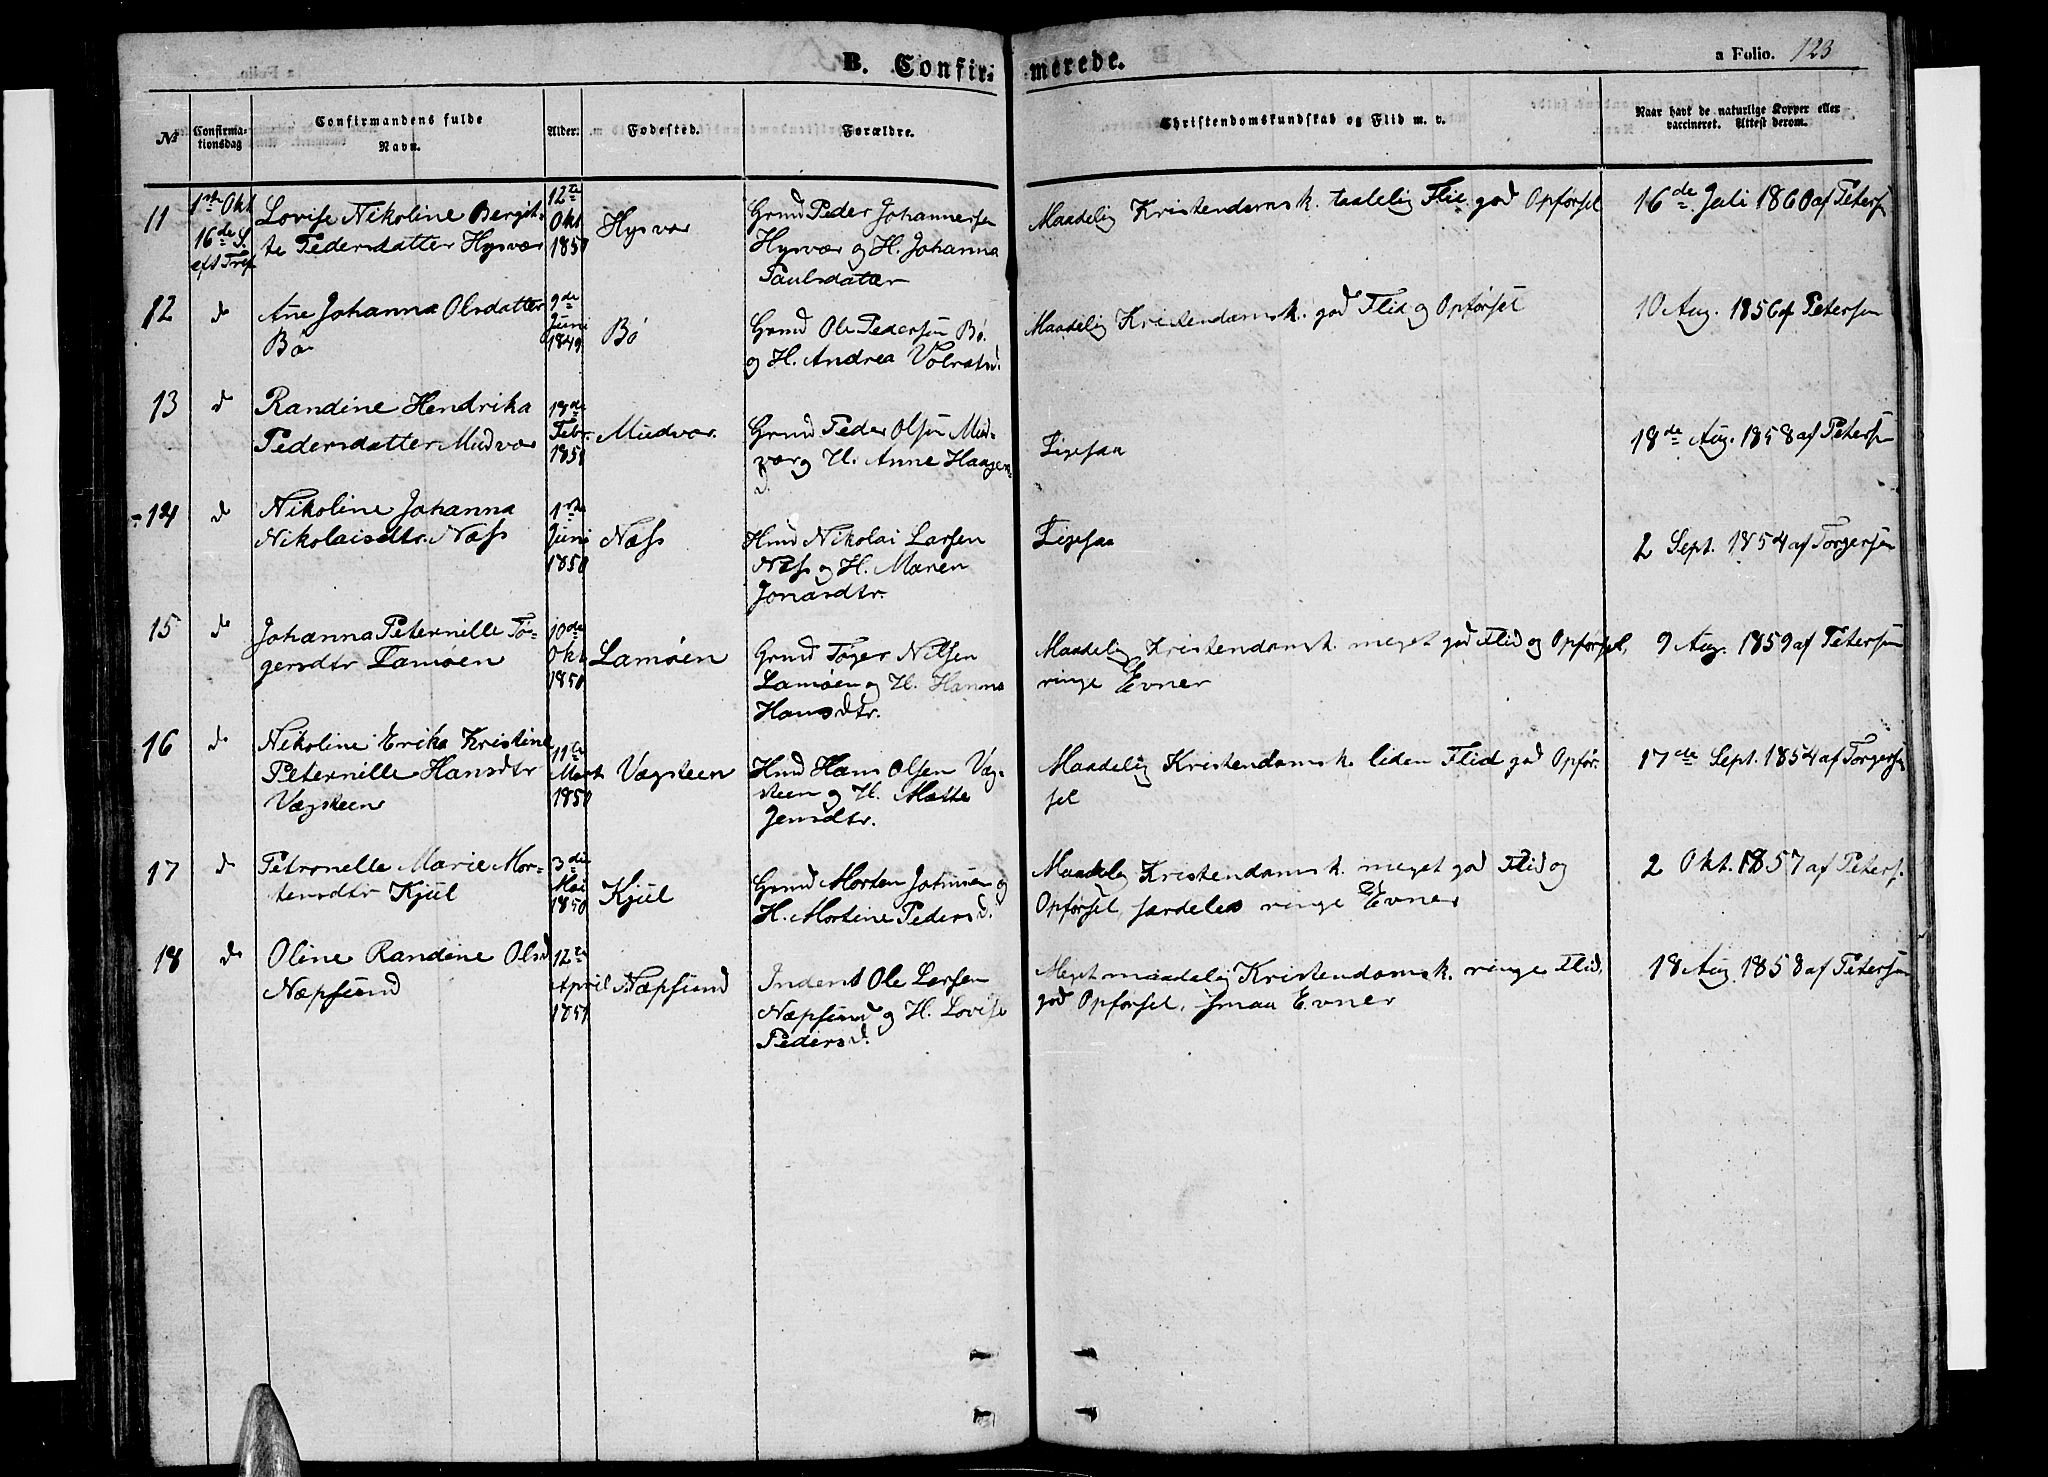 B. Confirmerede.
a Folio. 123
№
Confirmationsdag
Confirmandens fulde Navn.
Alder.
Fødested.
Forældre.
Christendomskundskab og Flid m. v.
Naar havt de naturlige Kopper eller vaccineret. Attest derom.
11
1ste Okt
16de S.
eft Tref
Lovise Nikoline Bergit-
te Pedersdatter Hysvær
12te
Okt
1850
Hysvær
Grmd Peder Johannesen
Hysvær og H. Johanna
Paulsdatter
Maadelig Kristendomsk. taalelig Flid god Opførsel
16de Juli 1860 af Petersen
12
do
Ane Johanna Olsdatter
Bø
9de
Juni
1849
Bø
Grmd Ole Pedersen Bø
og H. Andrea Volratsd.
Maadelig Kristendomsk. god Flid og Opførsel
10 Aug. 1856 af Petersen
13
do
Randine Hendrika
Pedersdatter Mudvær
Febr.
1850
Mudvær.
Grmd Peder Olsen Mud-
vær og H. Anne Haagens
d.
Ligesaa
18de Aug. 1858 af Petersen
14
do
Nikoline Johanna
Nikolaisdtr. Næss
1ste
Juni
1850
Næss
Hmd Nikolai Larsen
Næss og H. Maren
Jonasdtr.
Ligesaa
2 Sept. 1854 af Torgersen
15
do
Johanna Peternille Tø-
gersdtr Lamøen
10de
Okt
1850
Lamøen
Grmd Tøger Nilsen
Lamøen og H. Hanna
Hansdtr.
Maadelig Kristendomsk. meget god Flid og Opførsel,
ringe Evner
9 Aug. 1859 af Petersen
16
do
Nikoline Erika Kristine
Peternille Hansdtr
Vægsteen
11te
Mart
1850
Vægsteen
Hmd Hans Olsen Væg-
steen og H. Mette
Jensdtr.
Maadelig Kristendomsk. liden Flid god Opfør-
sel
17de Sept. 1854 af Torgersen
17
do
Petronelle Marie Mor-
tensdtr Kjul
3die
Mai
1850
Kjul
Grmd Morten Johnsen og
H. Mortine Pedersd.
Maadelig Kristendomsk. meget god Flid og
Opførsel, særdeles ringe Evner
2 Okt. 1857 af Peters.
18
do
Oline Randine Olsd
Næpsund
12te
April
1851
Næpsund
Inderst Ole Larsen
Næpsund og H. Lovise
Pedersd.
Meget maadelig Kristendomsk. ringe Flid,
god Opførsel, smaa Evner
18 Aug. 1858 af Petersen